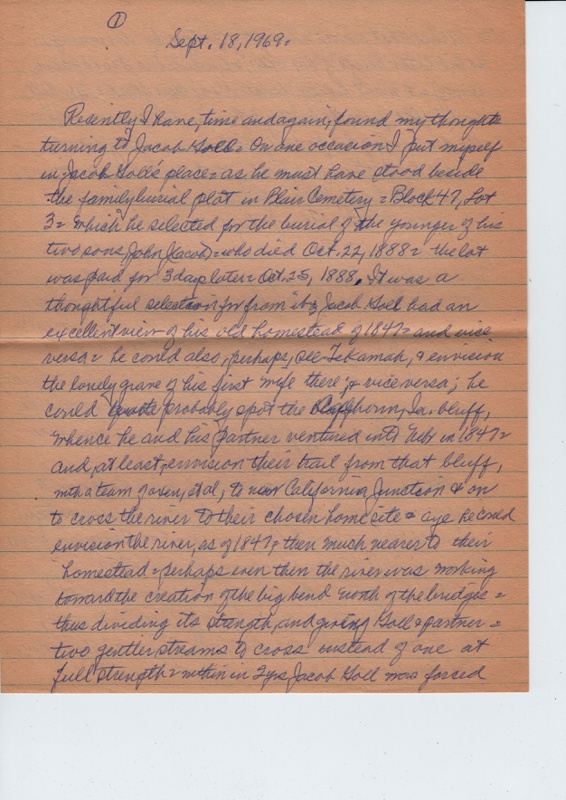 ①
Sept. 18, 1969.
Recently I have, time and again, found my thoughts
turning to Jacob Goll. On one occasion I put myself
in Jacob Goll's place = as he must have stood beside
the family burial plat in Blair Cemetery = Block 47, Lot
3 = which he selected for the burial of the younger of his
two sons, John (Jacob) = who died Oct. 22, 1888 = the lot
was paid for 3 days later = Oct. 25, 1888. It was a
thoughtful selection for from it Jacob Goll had an
excellent view of his old homestead of 1847 = and vice
versa = he could also, perhaps, see Tekamah, & envision
the lonely grave of his first wife there, & vice versa; he
could probably spot the Ia. bluff,
whence he and his partner ventured into Nebr in 1847 =
and, at least, envision their trail from that bluff,
with a team of oxen, et al, to California Junction & on
to cross the river to their chosen home site = aye he could
envision the river, as of 1847, then much nearer to their
homestead = perhaps even then the river was working
toward the creation of the big bend north of the bridges =
thus dividing its strength, and giving Goll & partner =
two gentler streams to cross instead of one at
full strength = within in 2 yrs, Jacob Goll was forced